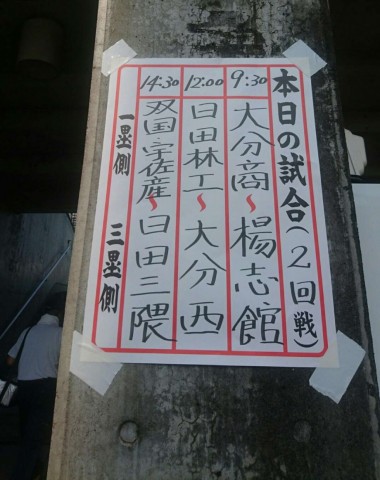 本日の試合(2回戦)
9:30 大分商〜楊志館
12:00 日田林工〜大分西
14:30 双国・宇佐産〜日田三隈
一塁側 三塁側